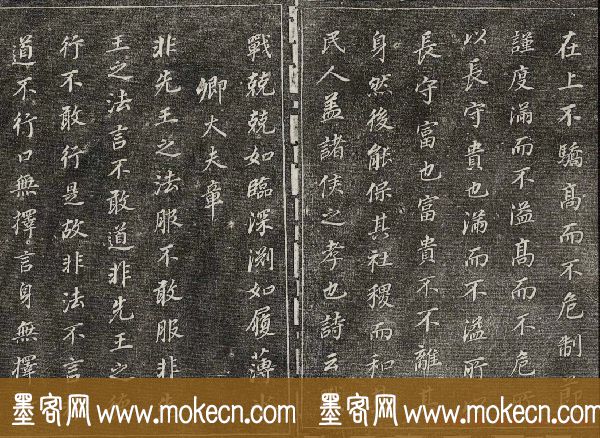 在上不驕高而不危制節
謹度滿而不溢高而不危所
以長守貴也滿而不溢所以
長守富也富貴不不離其
身然後能保其社稷而和其
民人蓋諸侯之孝也詩云戰
戰兢兢如臨深淵如履薄冰
卿大夫章
非先王之法服不敢服非先
王之法言不敢道非先王之德
行不敢行是故非法不言
道不行口無擇言身無擇
墨客网 www.mokecn.com 墨客网 www.mokecn.com